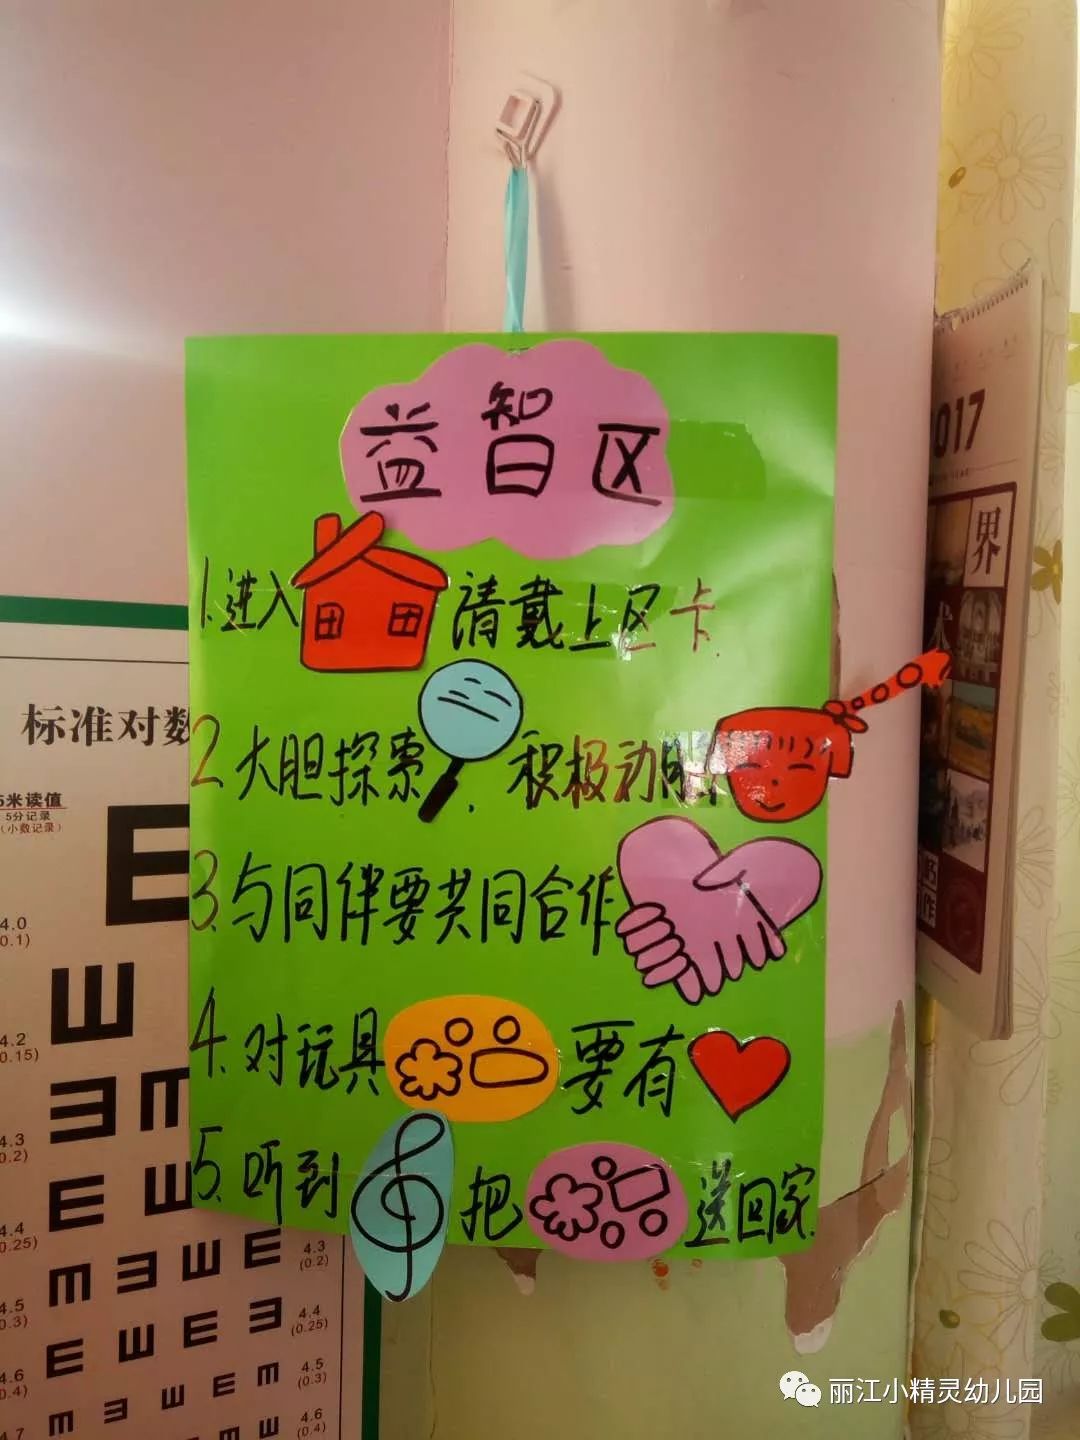 益智区
1.进入 请戴上区卡.
2.大胆探索,积极动脑
3.与同伴要共同合作
4.对玩具 要有
5.听到 把 送回家.
标准对数
5米读值
5分记录
(小数记录)
4.0
(0.1)
4.2
(0.15)
4.3
(0.2)
4.4
(0.25)
4.5
(0.3)
4.6
(0.4)
4.7
4.3
(0.2)
4.4
(0.25)
4.5
(0.3)
4.6
(0.4)
017
界
术
作
丽江小精灵幼儿园